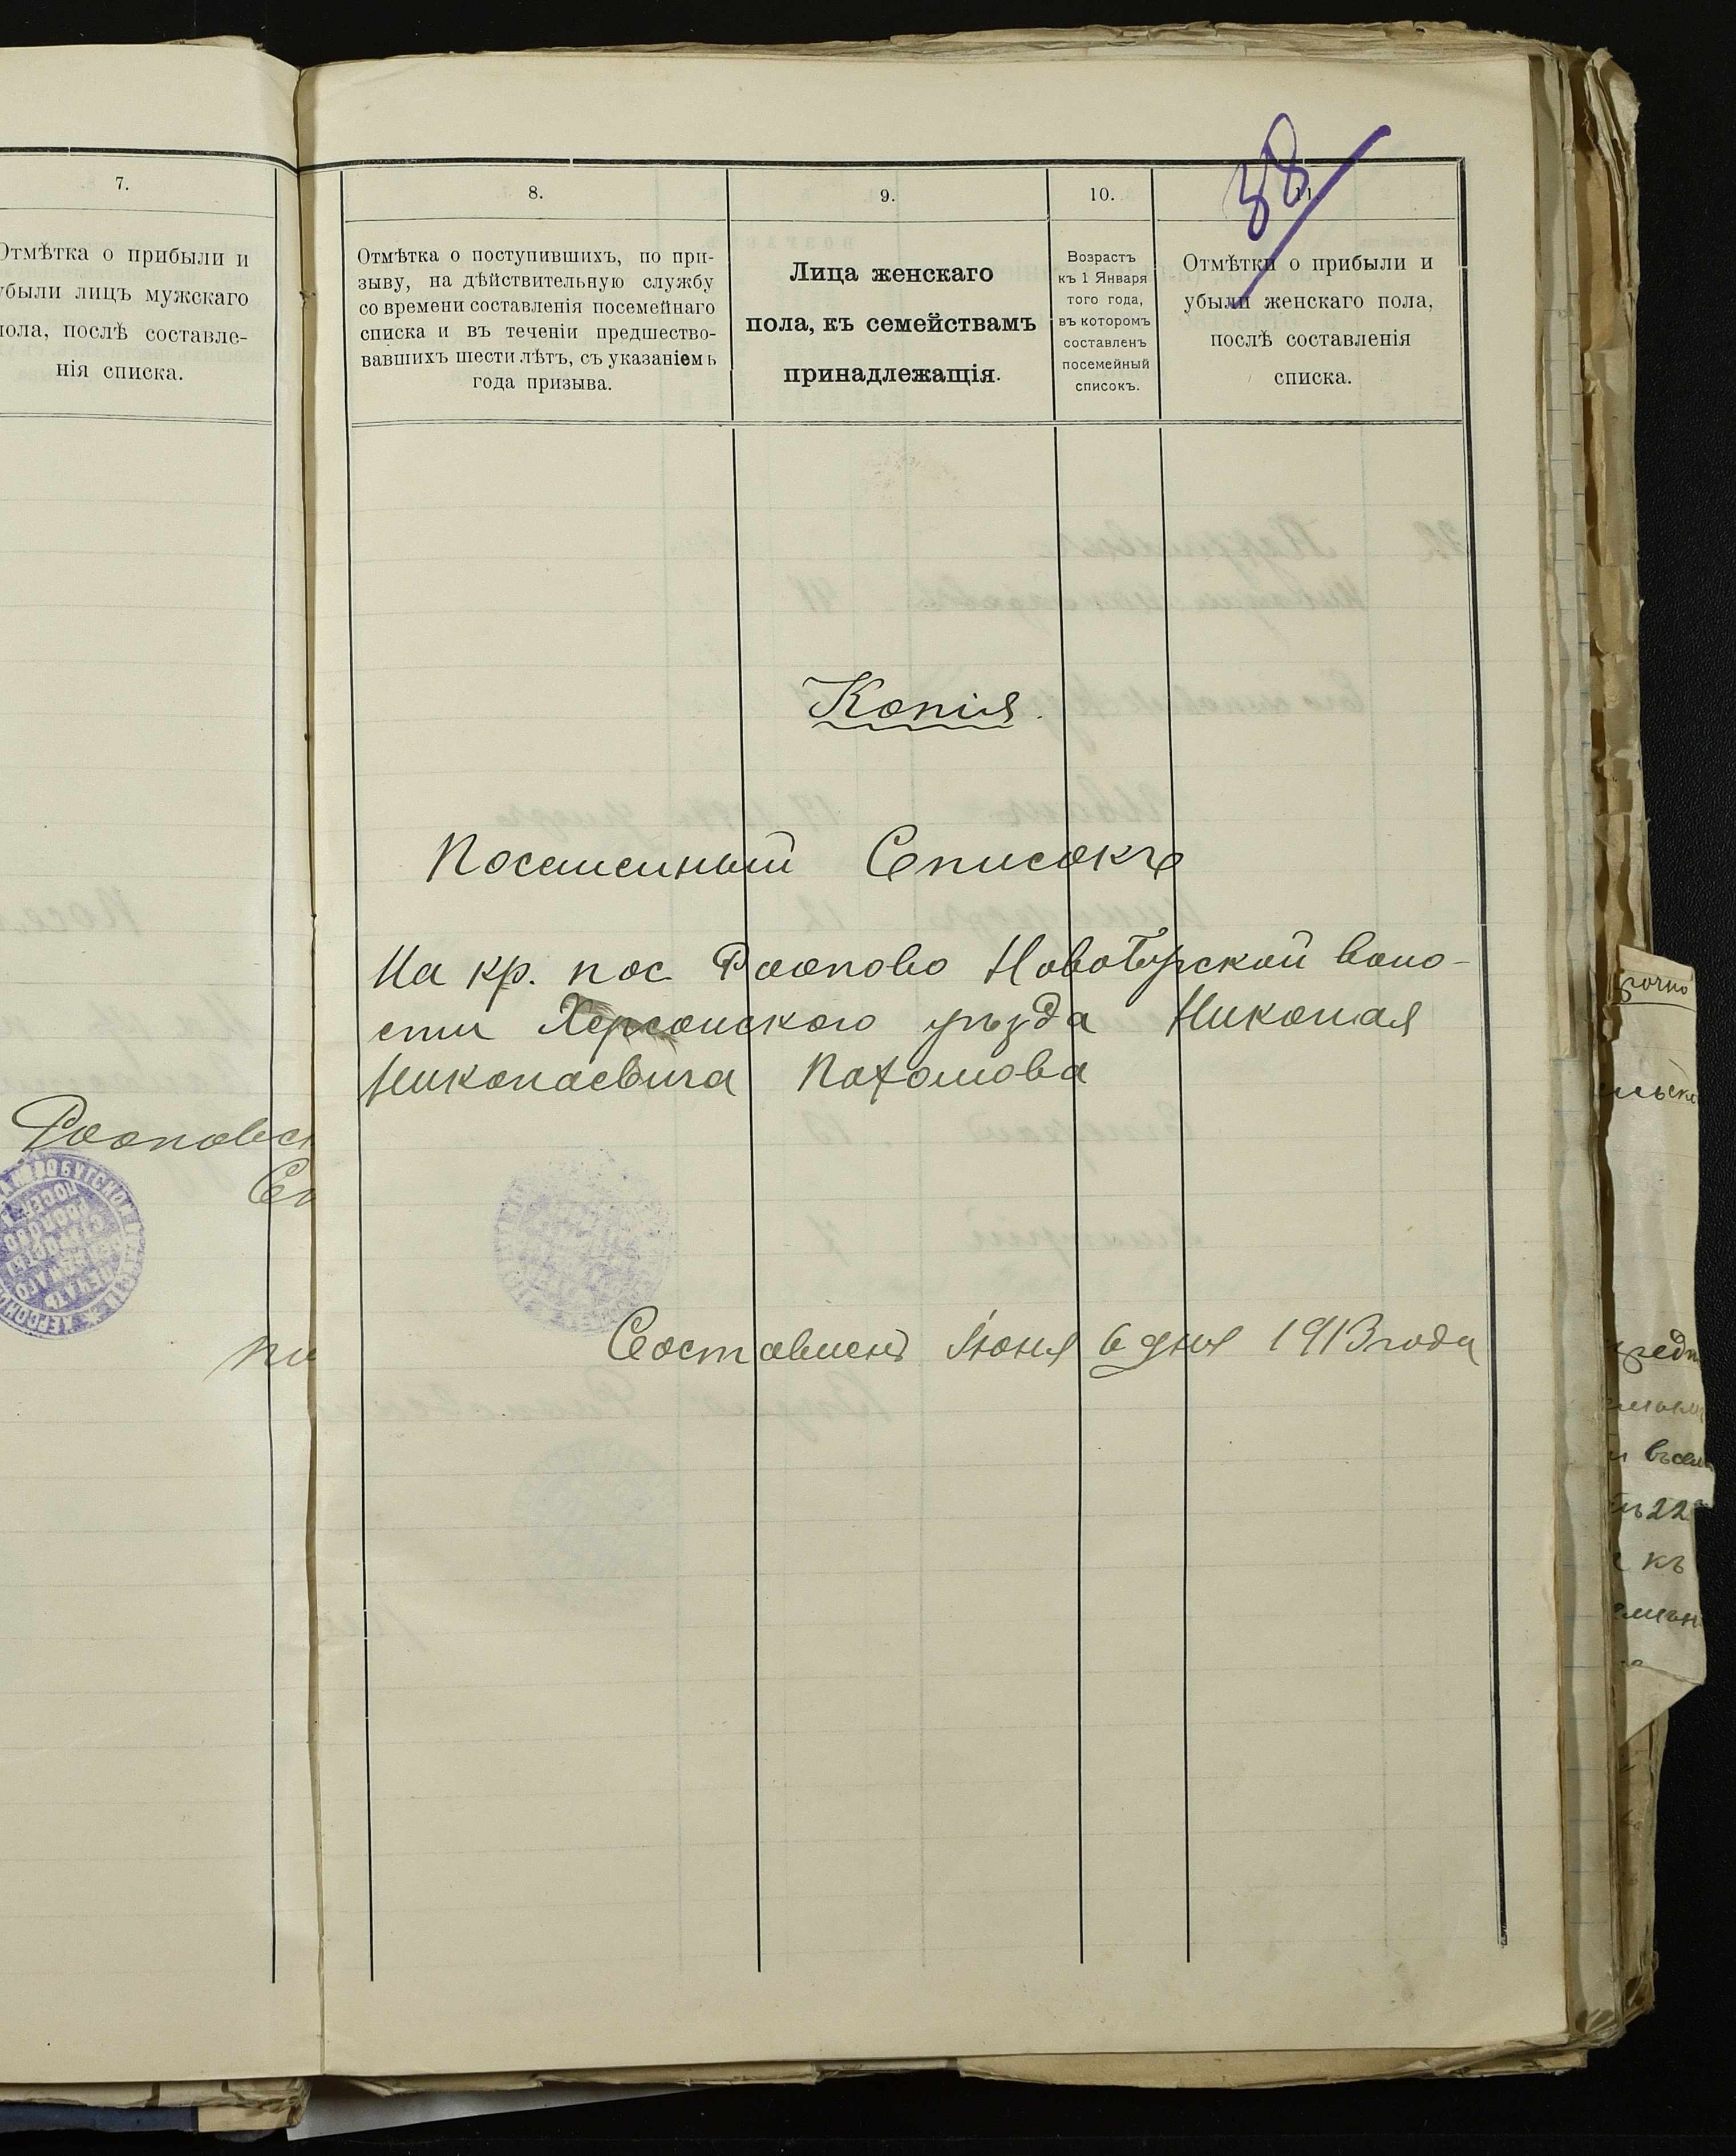 7.
Отмѣтка о прибыли и
убыли лицъ мужскаго
пола, послѣ составле-
нія списка.
Роопобск
Со
8.
Отмѣтка о поступившихъ, по при-
зыву, на дѣйствительную службу
со времени составленія посемейнаго
списка и въ теченіи предшество-
вавшихъ шести лѣтъ, съ указаніемъ
года призыва.
9.
Лица женскаго
пола, къ семействамъ
принадлежащія.
10.
Возрастъ
къ 1 Января
того года,
въ которомъ
составленъ
посемейный
списокъ.
11.
Отмѣтки о прибыли и
убыли женскаго пола,
послѣ составленія
списка.
38
Копія.
Посемейный Списокъ
На кр. пос. Роопово Новобугской воло-
сти Херсонского уѣзда Николая
Николаевича Пахомова
Составленъ Іюня 6 дня 1913 года
рочно
22
къ